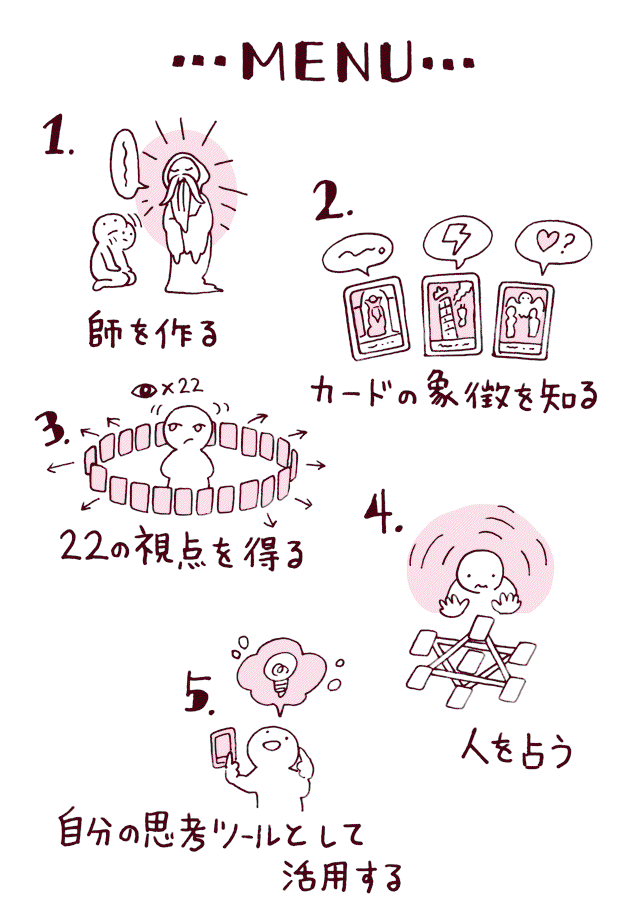 ...MENU...
1.
師を作る
2.
?
カードの象徴を知る
3.
×22
22の視点を得る
4.
人を占う
5.
自分の思考ツールとして
活用する